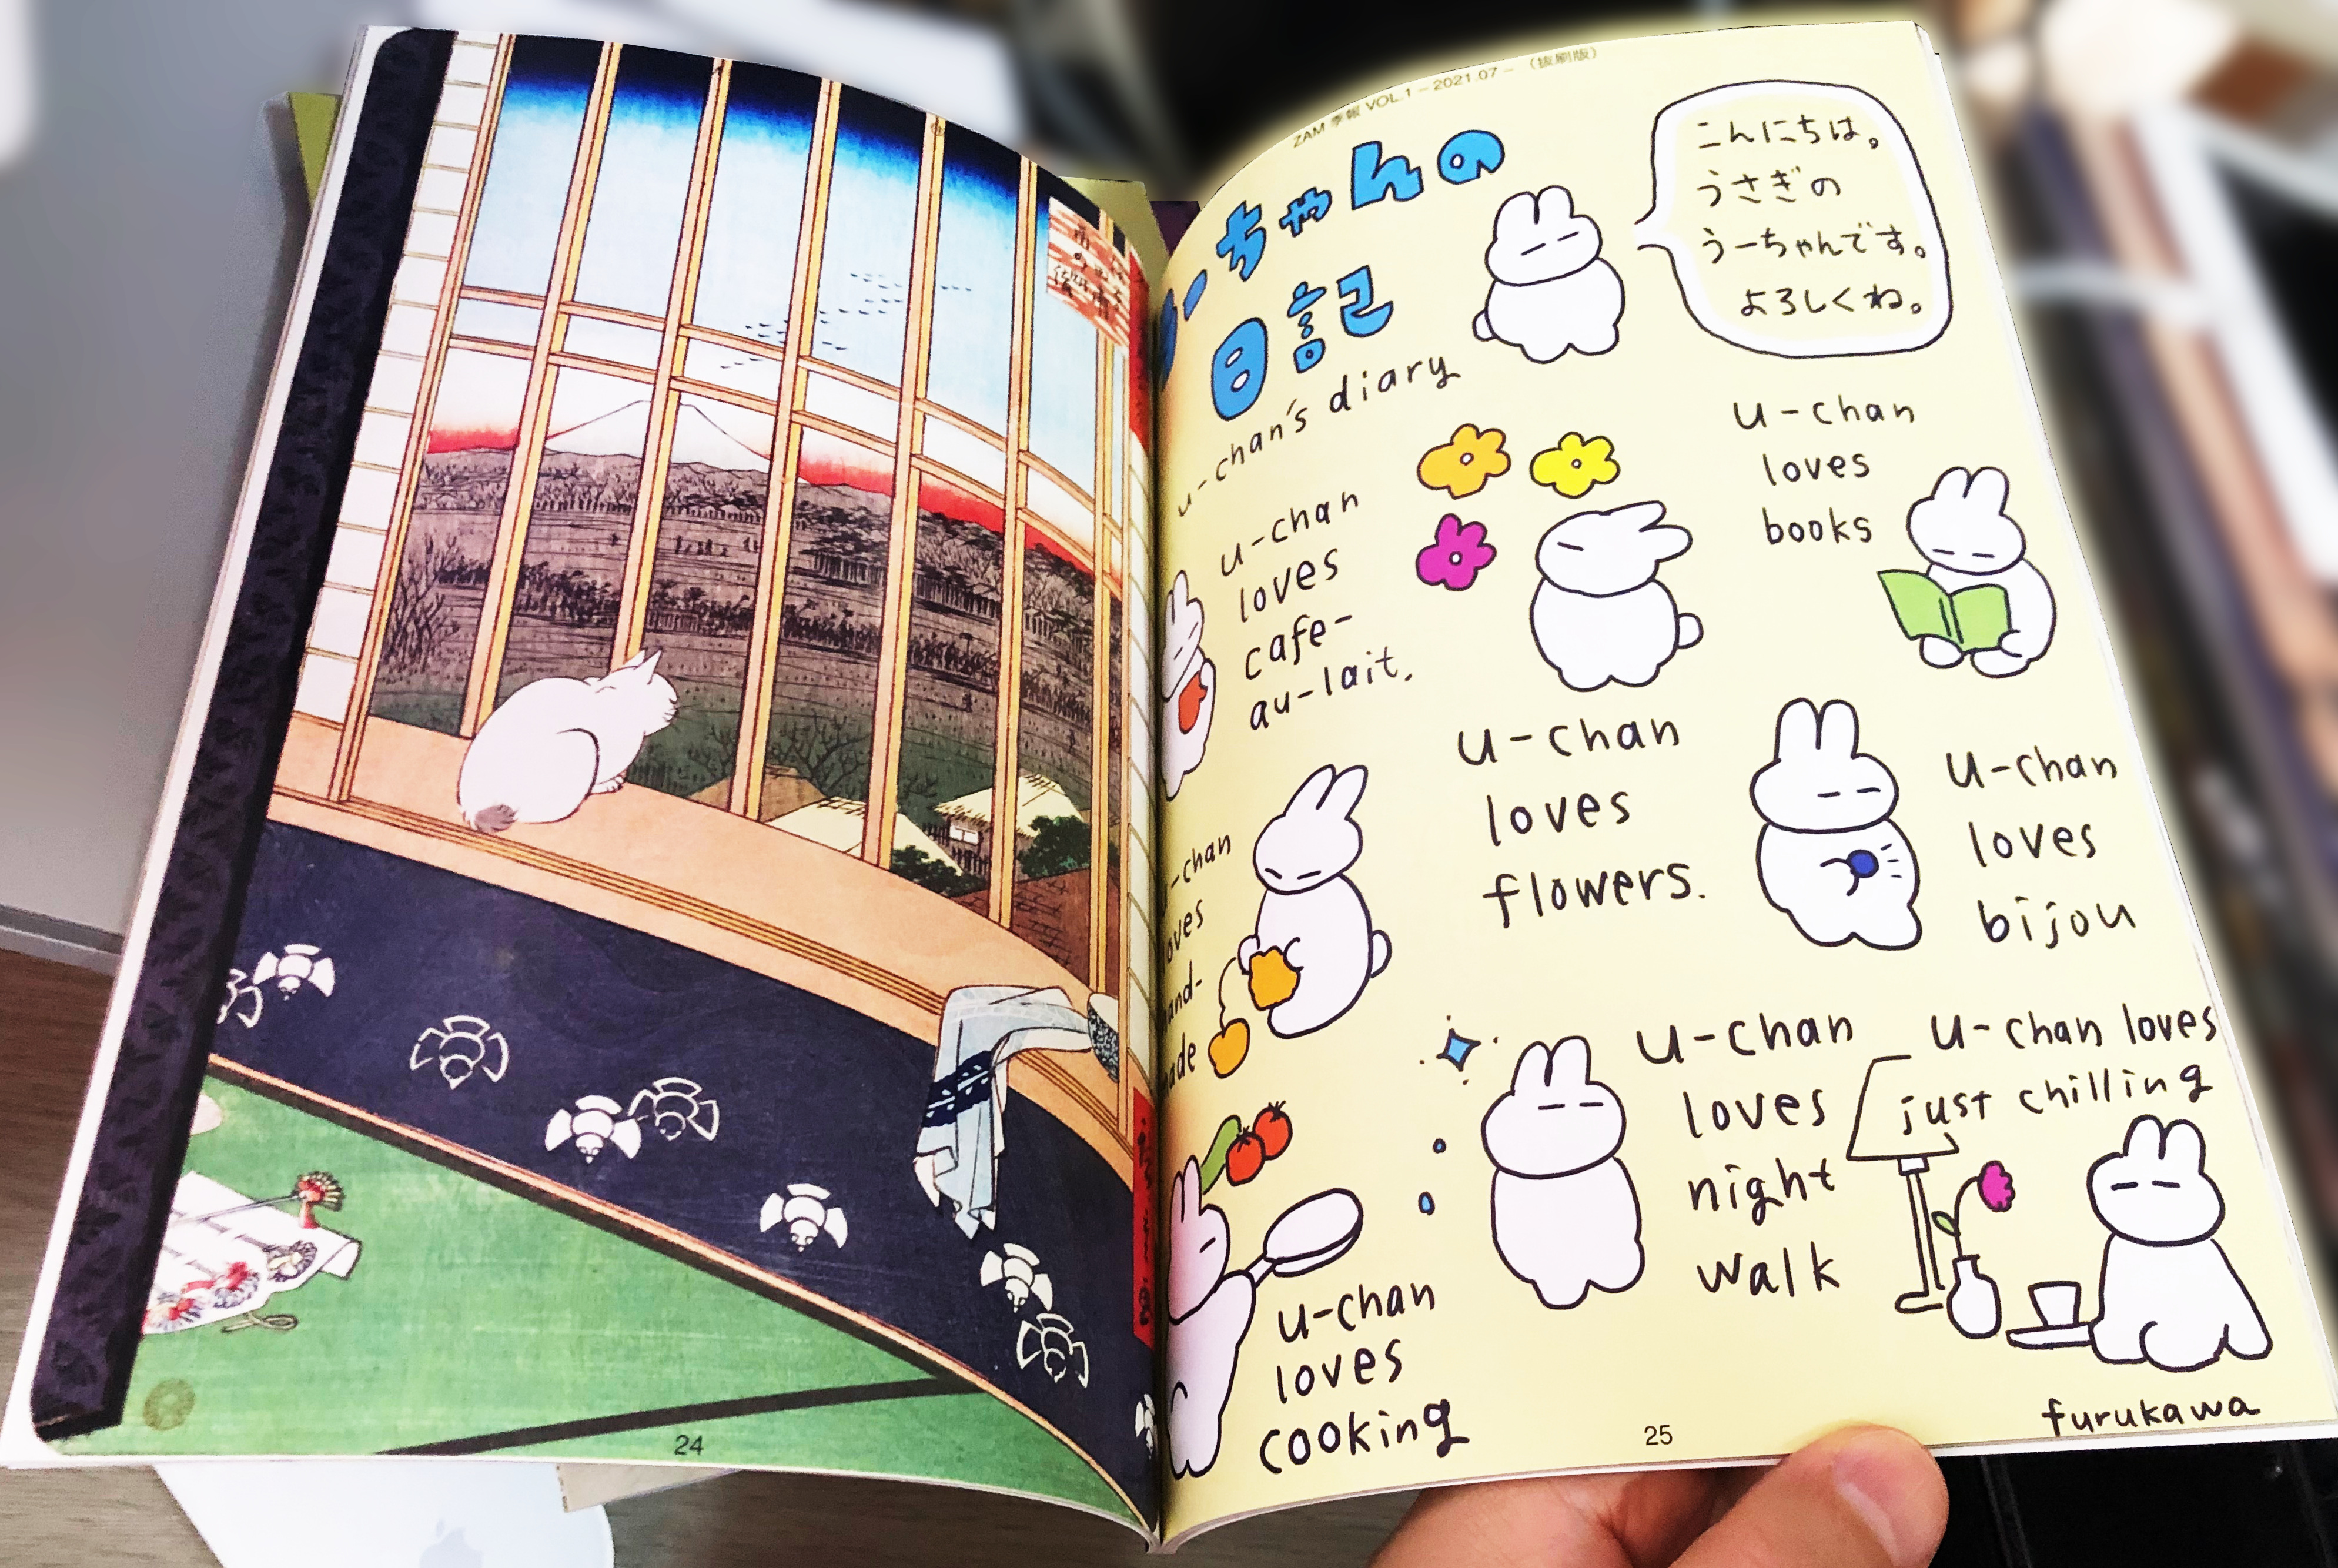 24
ZAM 季報 VOL.1 – 2021.07 – （抜刷版）
うーちゃんの
日記
u-chan's diary
こんにちは。
うさぎの
うーちゃんです。
よろしくね。
u-chan
loves
cafe-
au-lait.
u-chan
loves
flowers.
u-chan
loves
books
u-chan
loves
bijou
-chan
oves
and-
ade
u-chan
loves
cooking
u-chan
loves
night
walk
u-chan loves
just chilling
furukawa
25